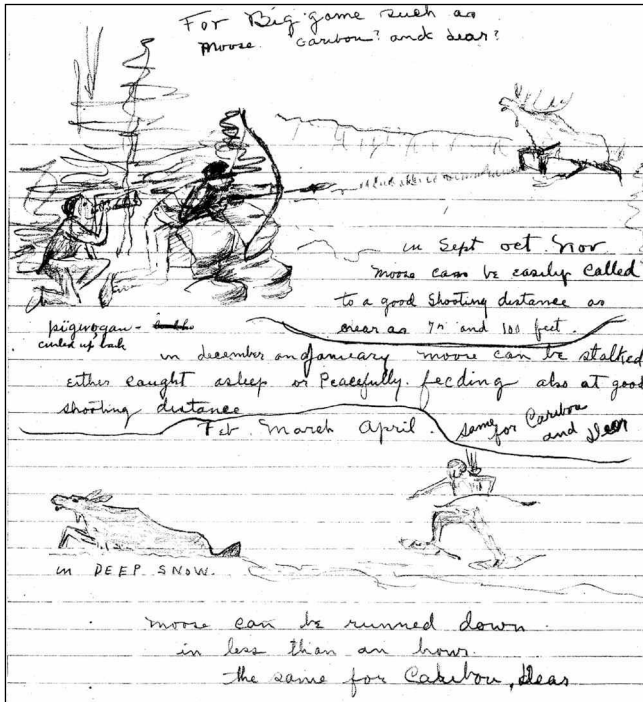 For Big game such as
moose. Caribou? and dear?
in Sept oct Nov
moose can be easily called
to a good shooting distance as
near as 75 and 100 feet.
pigwogan -
curled up bark
in december and january moose can be stalked
Either caught asleep or Peacefully feeding also at good
shooting distance
Feb March April. same for Caribou and Dear
in DEEP SNOW.
moose can be runned down
in less than an hour
the same for Caribou, Dear